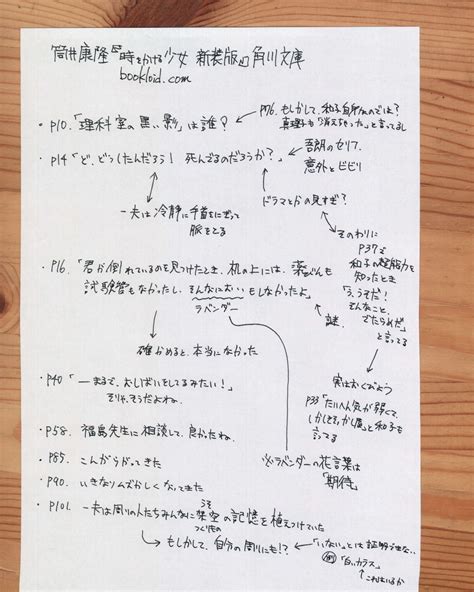 筒井康隆『時をかける少女 新装版』角川文庫
bookloid.com
・P10.「理科室の黒い影」は誰?
P76. もしかして、和子自身なのでは?
真理子も「消えちゃった」と言ってるし
・P14「ど、どうしたんだろう! 死んでるのだろうか?」
吾朗のセリフ。
意外とビビリ
一夫は冷静に手首をにぎって
脈をとる
ドラマとかの見すぎ?
そのわりに
P37で
和子の超能力を
知ったとき
「う、うそだ!
そんなこと、
でたらめだ」
と言ってる
・P16.「君が倒れているのを見つけたとき、机の上には、薬びんも
試験管もなかったし、そんなにおいもしなかったよ」
ラベンダー
謎
確かめると、本当になかった
実はおくびょう
P33「たいへん気が弱くて、
しかしまあ」と和子も
言ってる
・P40「一まるで、おしばいをしてるみたい!」
そりゃ、そうだよね。
・P58. 福島先生に相談して、良かったね。
・P85. こんがらがってきた
・P90. いきなりムズかしくなってきた
※ラベンダーの花言葉は
「期待」
・P101. 一夫は周りの人たちみんなに架空の記憶を植えつけていた
うそ
つくりもの
もしかして、自分の周りにも!?
「いない」とは証明できない
例「白いカラス」
これはいるか